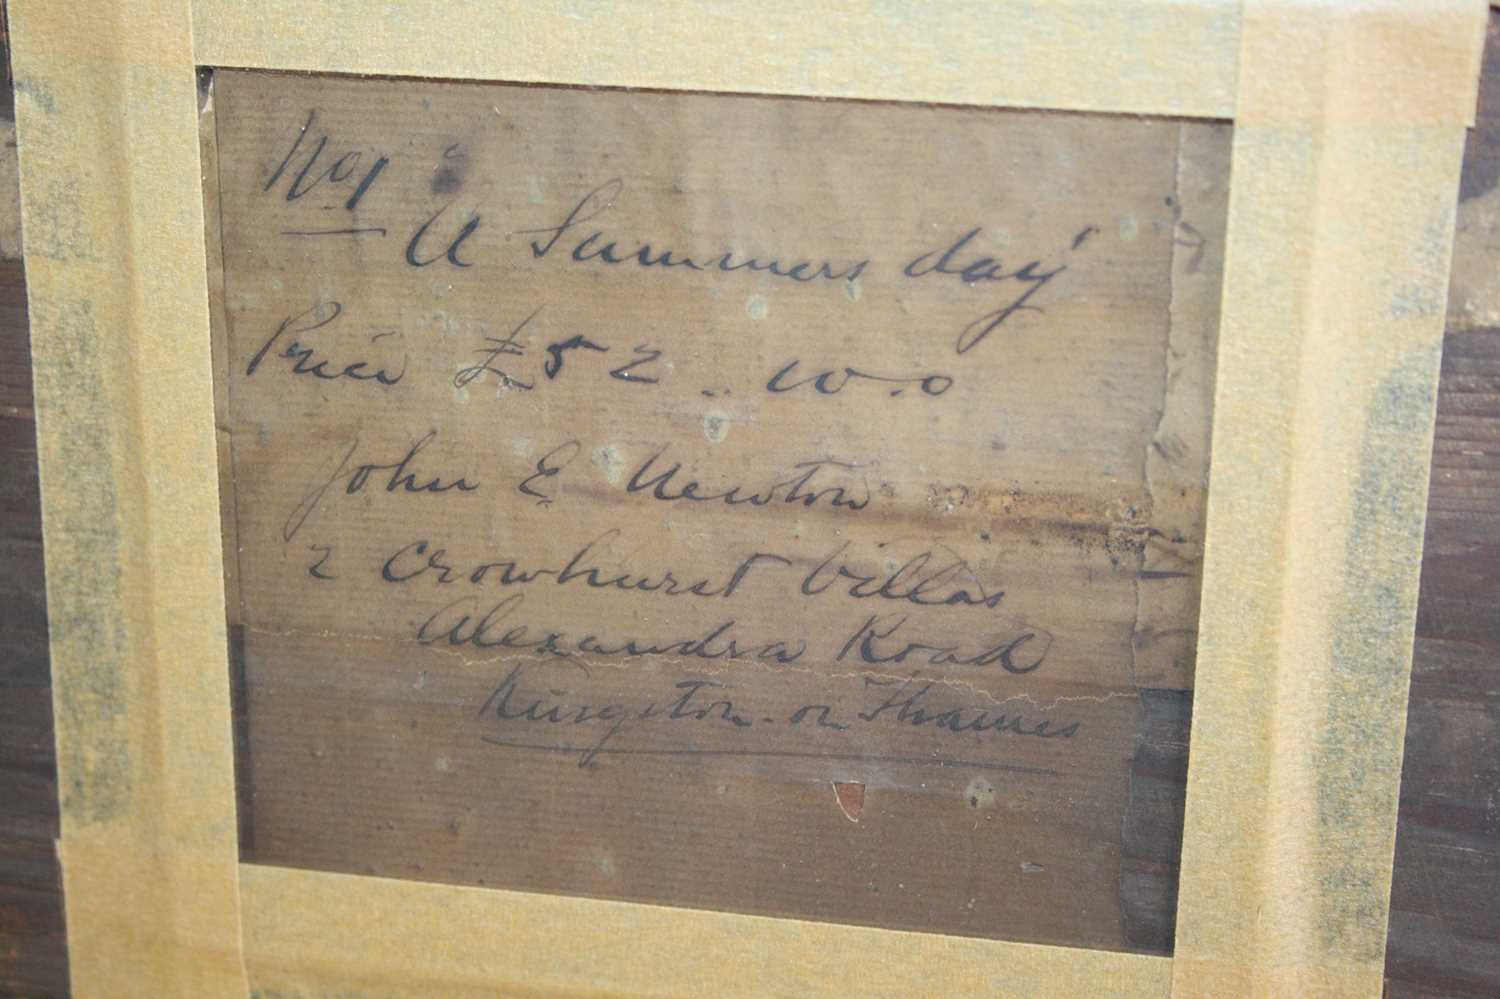 No 1
"A Summers day"
Price £52..10..0
John E Newton
2 Crowhurst Villas
Alexandra Road
Kingston-on Thames